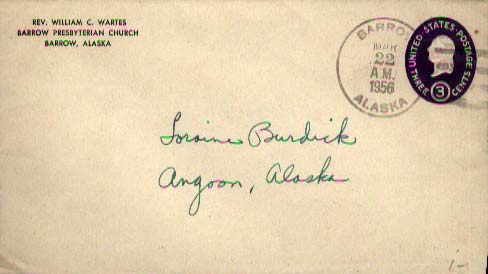 REV. WILLIAM C. WARTES
BARROW PRESBYTERIAN CHURCH
BARROW, ALASKA
BARROW
MAR
22
A.M.
1956
ALASKA
UNITED·STATES·POSTAGE
THREE 3 CENTS
Loraine Burdick
Angoon, Alaska
1-